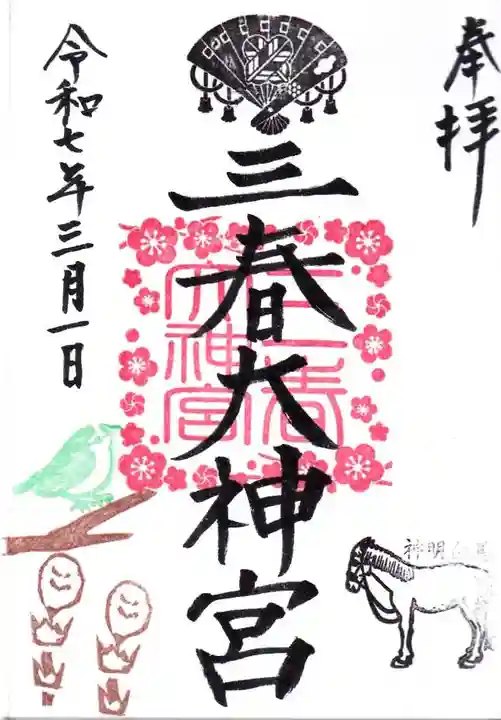 奉拝
三春大神宮
三春
大神宮
令和七年三月一日
神明